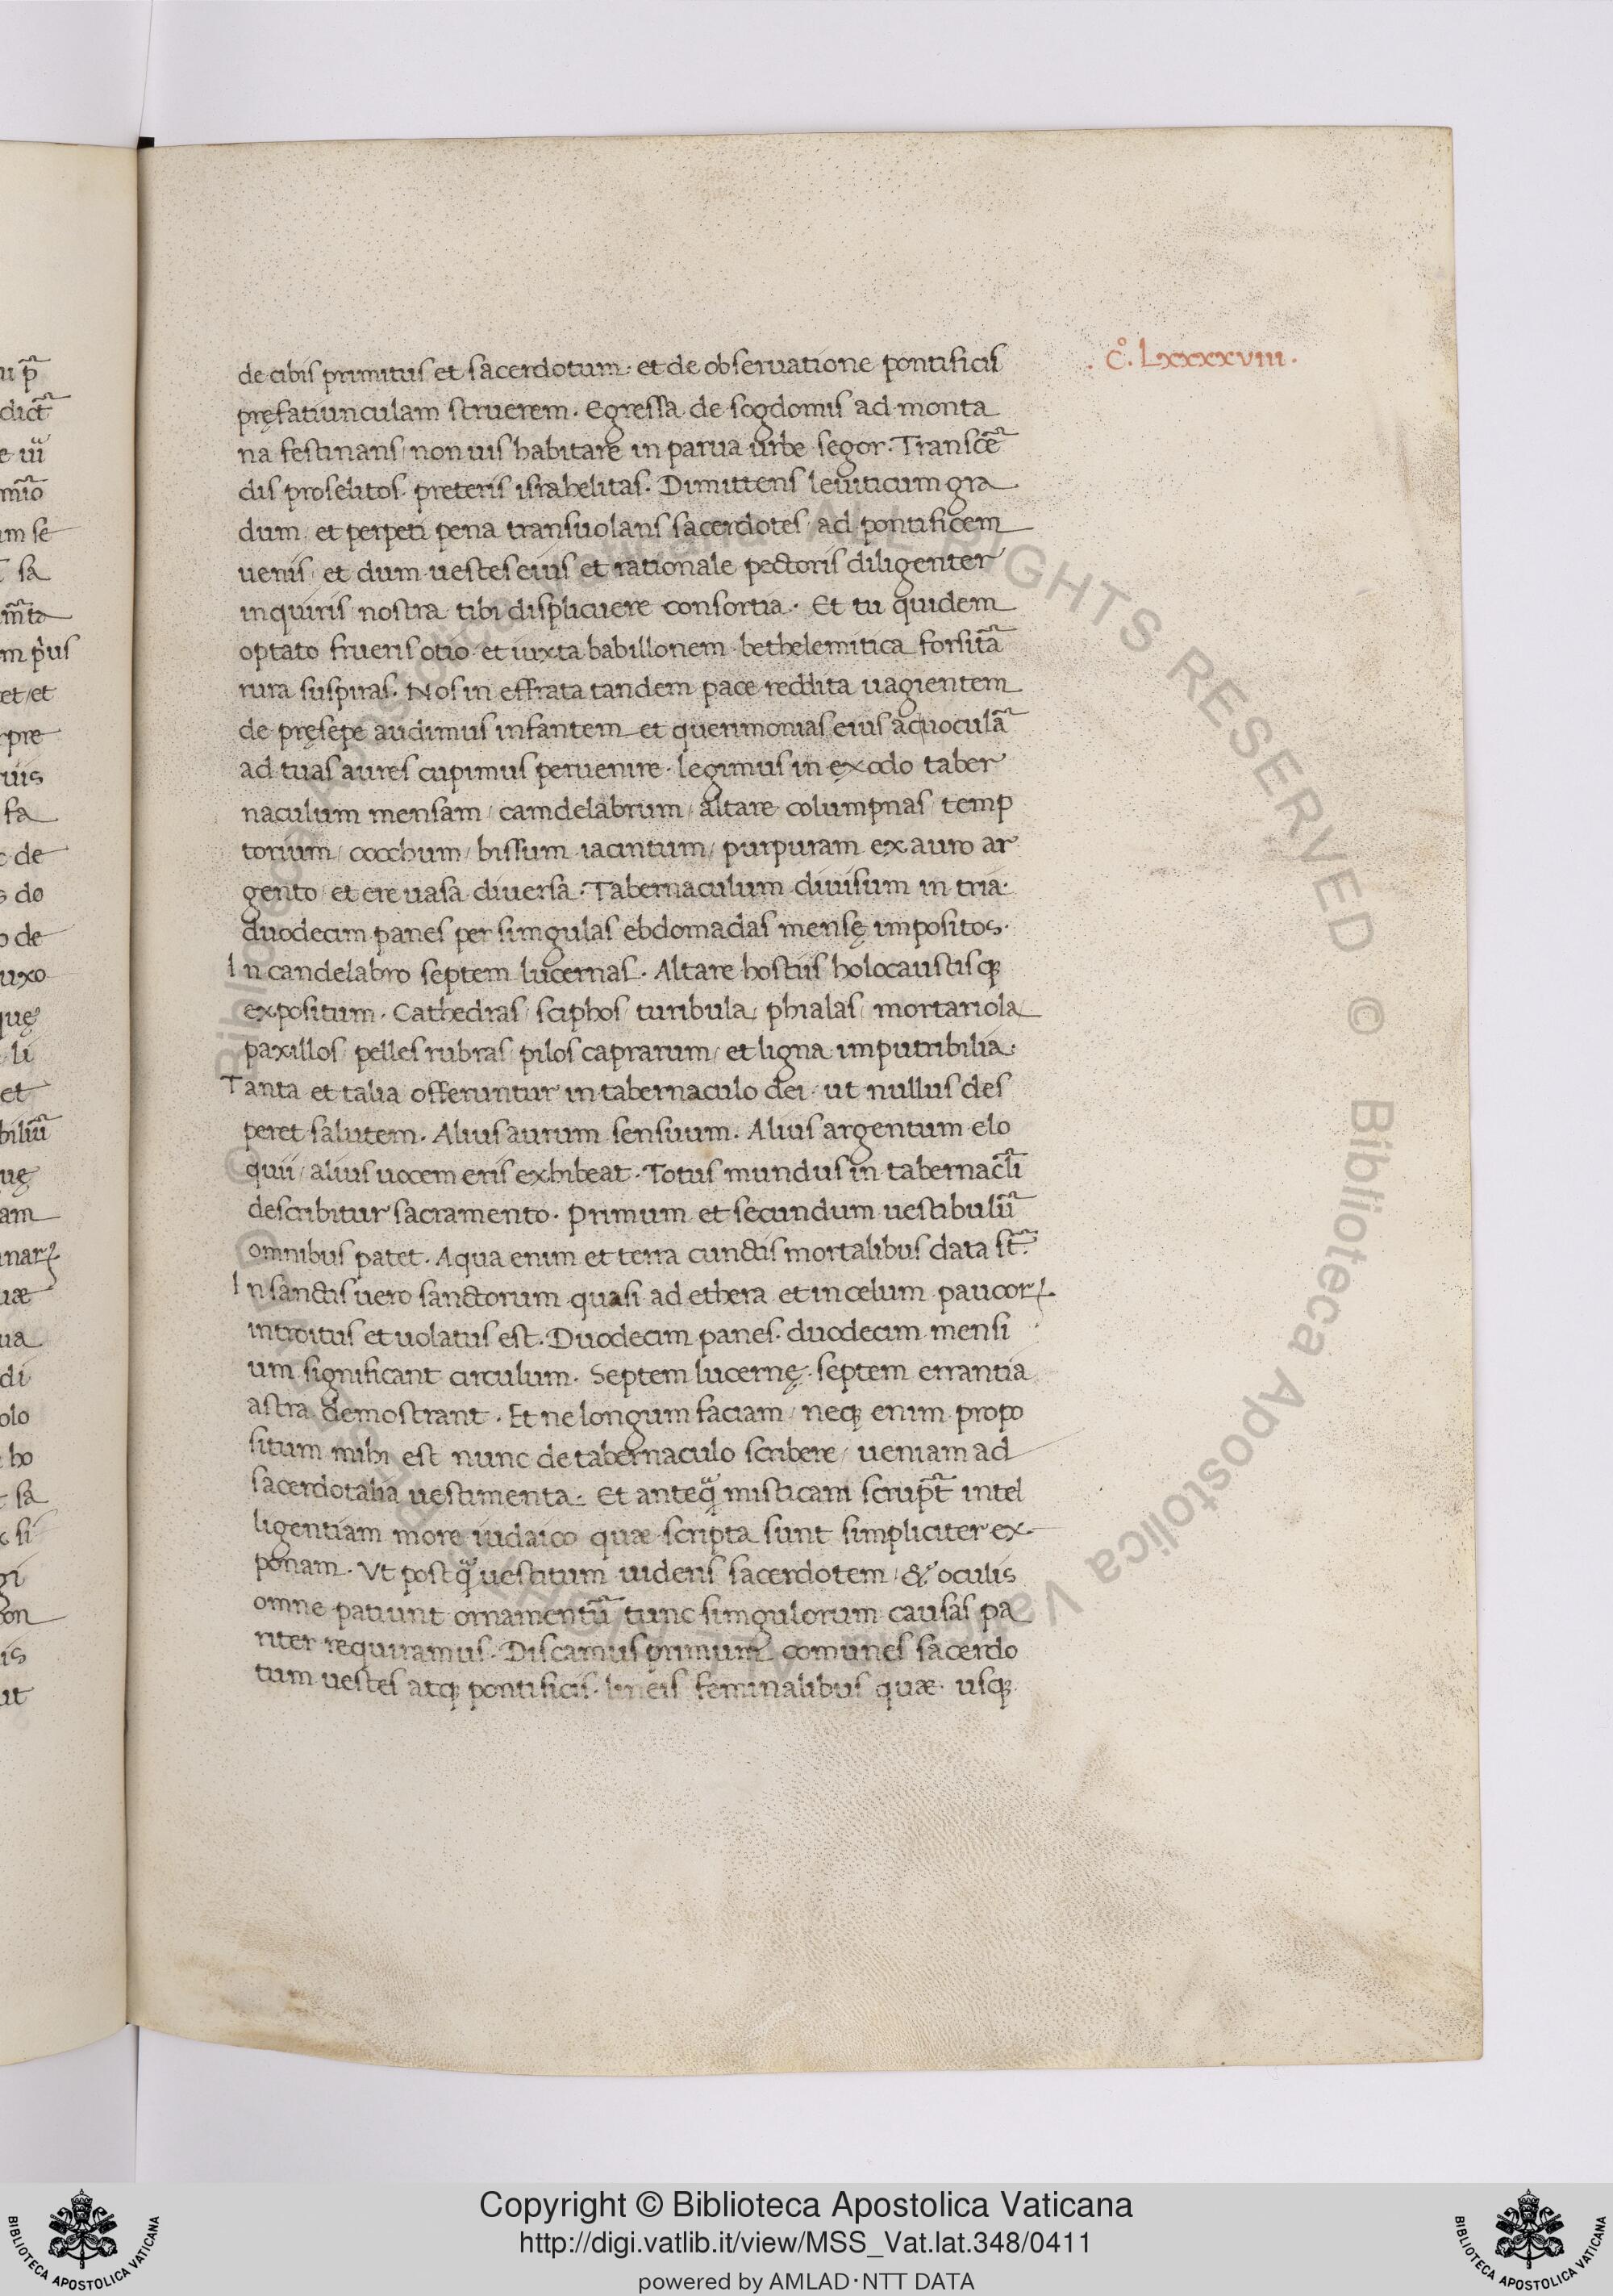 . c̊. Lxxxxviii.
de cibis primitiuis et sacerdotum. et de obseruatione pontificis
pręfatiunculam struerem. Egressa de sogdomis ad monta
na festinans/ non uis habitare in parua urbe segor. Transcē
dis proselitos. preteris israhelitas. Dimittens leuiticum gra
dum/ et perpeti pena transuolans sacerdotes/ ad pontificem
uenis/ et dum uestes eius et rationale pectoris diligenter
inquiris/ nostra tibi displicuere consortia. Et tu quidem
optato frueris otio et iuxta babillonem bethelemitica forsitā
rura suspiras. Nos in effrata tandem pace reddita uagientem
de pręsepe audimus infantem et querimonias eius ac uoculā
ad tuas aures cupimus peruenire. legimus in exodo taber
naculum mensam/ camdelabrum/ altare columpnas/ temp
torium/ cocchum/ bissum iacintum/ purpuram ex auro ar
gento/ et ere uasa diuersa. Tabernaculum diuisum in tria.
duodecim panes per simgulas ebdomadas mensę impositos.
In candelabro septem lucernas. Altare hostiis holocaustisq;
expositum. Cathedras/ sciphos/ turibula/ phialas/ mortariola
paxillos/ pelles rubras/ pilos caprarum/ et ligna imputribilia.
Tanta et talia offeruntur in tabernaculo dei. ut nullus des
peret salutem. Alius aurum sensuum. Alius argentum elo
quii/ alius uocem eris exhibeat. Totus mundus in tabernacl̄i
describitur sacramento. Primum et secundum uestibulū
omnibus patet. Aqua enim et terra cunctis mortalibus data st̄.
In sanctis uero sanctorum quasi ad ethera et in celum paucorꝝ
introitus et uolatus est. Duodecim panes. duodecim mensi
um significant circulum. Septem lucernę. septem errantia
astra demostrant. Et ne longum faciam/ neq; enim propo
situm mihi est nunc de tabernaculo scribere/ ueniam ad
sacerdotalia uestimenta. Et anteq̃ misticam script̄ intel
ligentiam more iudaico quæ scripta sunt simpliciter ex
ponam. Vt postq̃ uestitum uideris sacerdotem/ & oculis
omne patiunt ornamentū/ tunc simgulorum causas pa
riter requiramus. Discamus primum comunes sacerdo
tum uestes atq; pontificis. lineis feminalibus quæ usq;
Copyright © Biblioteca Apostolica Vaticana
http://digi.vatlib.it/view/MSS_Vat.lat.348/0411
powered by AMLAD·NTT DATA